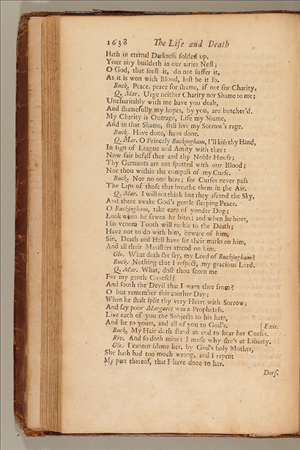 1638 The Life and Death
Hath in eternal Darkness folded up.
Your airy buildeth in our airies Nest;
O God, that seest it, do not suffer it,
As it is won with Blood, lost be it so.
Buck. Peace, peace for shame, if not for Charity.
Q. Mar. Urge neither Charity nor Shame to me;
Uncharitably with me have you dealt,
And shamefully my hopes, by you, are butcher'd.
My Charity is Outrage, Life my Shame,
And in that Shame, still live my Sorrow's rage.
Buck. Have done, have done.
Q. Mar. O Princely Buckingham, I'll kiss thy Hand,
In sign of League and Amity with thee:
Now fair befall thee and thy Noble House;
Thy Garments are not spotted with our Blood;
Nor thou within the compass of my Curse.
Buck. Nor no one here; for Curses never pass
The Lips of those that breathe them in the Air.
Q. Mar. I will not think but they ascend the Sky,
And there awake God's gentle sleeping Peace.
O Buckingham, take care of yonder Dog;
Look when he fawns he bites; and when he bites,
His venom Tooth will rankle to the Death;
Have not to do with him, beware of him,
Sin, Death and Hell have set their marks on him,
And all their Ministers attend on him.
Glo. What doth she say, my Lord of Buckingham?
Buck. Nothing that I respect, my gracious Lord.
Q. Mar. What, dost thou scorn me
For my gentle Counsel?
And sooth the Devil that I warn thee from?
O but remember this another Day;
When he shall split thy very Heart with Sorrow;
And say poor Margaret was a Prophetess.
Live each of you the Subjects to his hate,
And he to yours, and all of you to God's. [Exit.
Buck. My Hair doth stand an end to hear her Curses.
Riv. And so doth mine: I muse why she's at Liberty.
Glo. I cannot blame her, by God's holy Mother,
She hath had too much wrong, and I repent
My part thereof, that I have done to her.
Dors.